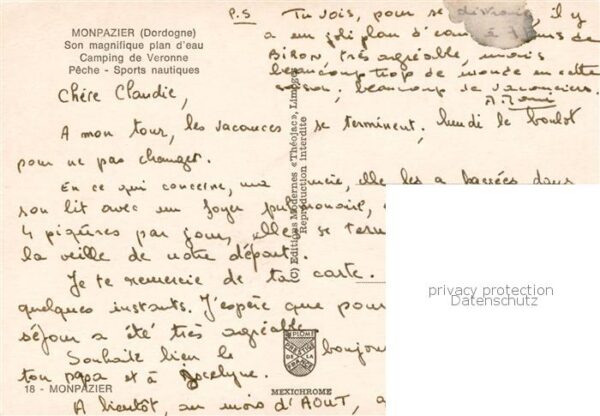 MONPAZIER (Dordogne)
Son magnifique plan d'eau
Camping de Veronne
Pêche - Sports nautiques
P.S Tu vois, pour se il y
a un joli plan d'eau à de
BIRON, très agréable, mais
beaucoup trop de monde en cette
saison, beaucoup de vacanciers.
Chère Claudie,
A mon tour, les vacances se terminent, lundi le boulot
pour ne pas changer.
En ce qui concerne, ma elle les a passées dans
son lit avec un foyer pulmonaire,
4 piqûres par jour, elles se
la veille de notre départ.
Je te remercie de ta carte.
quelques instants. J'espère que pour
séjour a été très agréable
Souhaite bien le bonjour
ton papa et à Jocelyne.
A bientôt, au mois d'AOUT, a
18 - MONPAZIER
(C) Editions Modernes «Théojac», Limoges
Reproduction interdite
MEXICHROME
privacy protection
Datenschutz